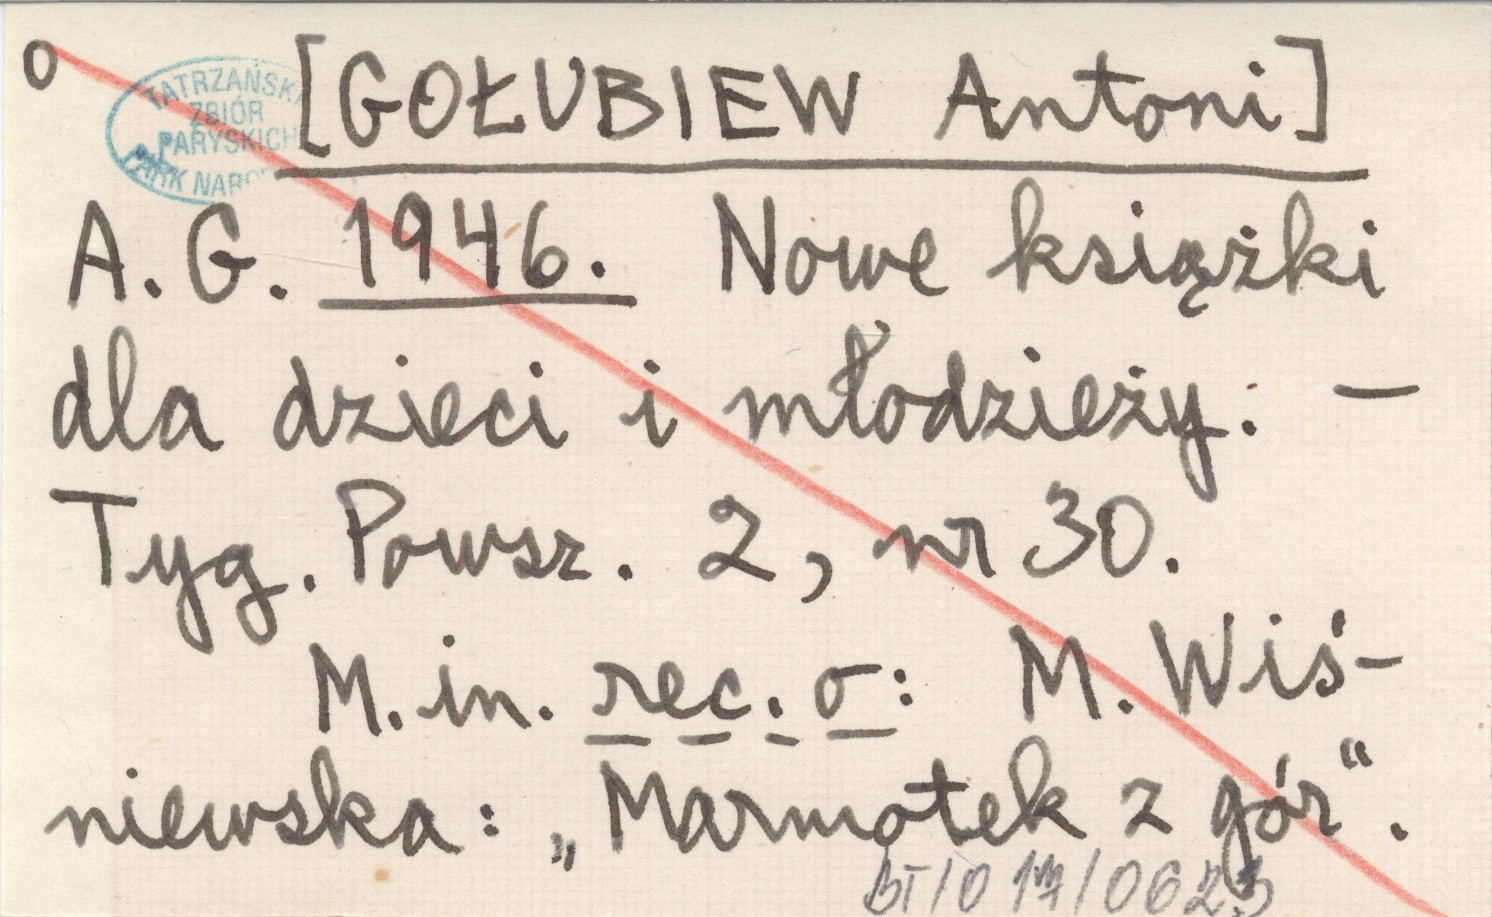 o
TATRZAŃSK
ZBIÓR
PARYSKICH
PARK NARO
[GOŁUBIEW Antoni]
A. G. 1946. Nowe książki
dla dzieci i młodzieży. —
Tyg. Powsz. 2, nr 30.
M. in. rec. o: M. Wiś-
niewska: „Marmotek z gór“.
BT/0 17/0623